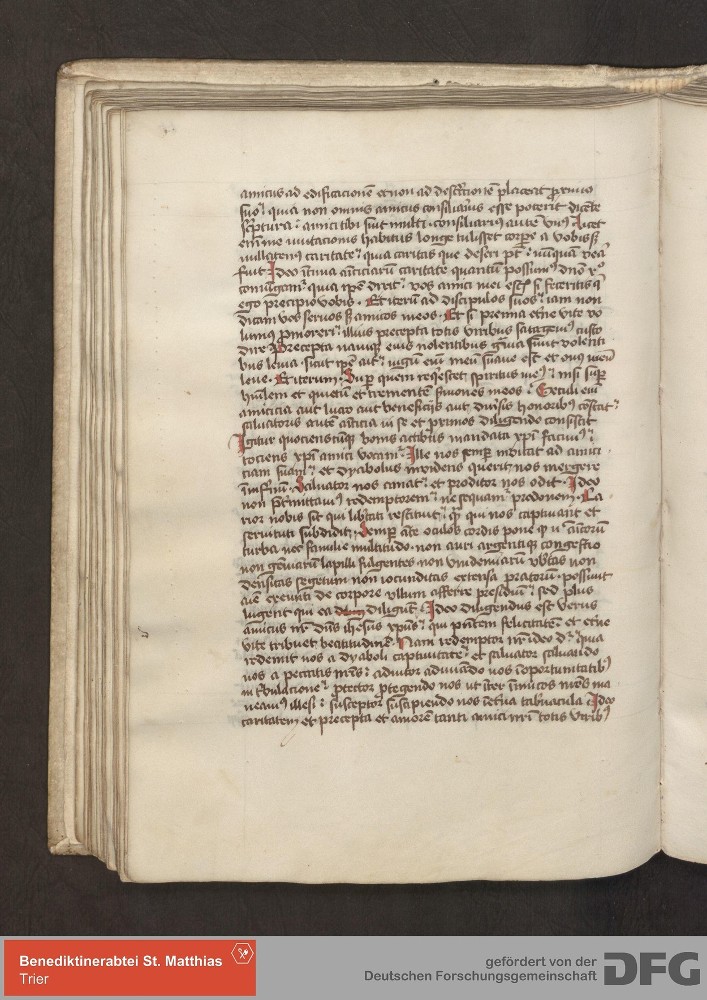 amicus ad edificacionē et non ad destructionē placeat proximo
suo quia non omnis amicus consiliarius esse poterit dicēte
scriptura amici tibi sint multi consiliarius autē unus Licet
enim me mutacionis habitus longe tulisset corpore a vobis sꝫ
nullatenus caritate quia caritas que deseri pt nūquā vera
fuit Ideo intima amiciciarū caritate quantū possumus dno xº
coniungamur quia ipe dixit vos amici mei estis si feceritis q
ego precipio vobis Et iterū ad discipulos suos iam non
dicam vos servos sꝫ amicos meos Et si premia eterne vite vo
lumus promereri illius precepta totis viribus satagemus custo
dire Precepta namque eius nolentibus gravia sunt volenti
bus levia sicut ipe ait iugū enī meū suave est et onus meū
leve Et iterum Super quem requiescet spiritus meus nisi super
humilem et quietū et trementē sermones meos Seculi enī
amicicia aut luxo aut beneficiis aut diversis honoribus constat
salvatoris autē amicicia in se et primos diligendo consistit
Igitur quociensciūque bonis actibus mandata xpi facimus
tociens xpi amici vocamur Ille nos semper invitat ad amici
ciam suam et dyabolus invidens querit nos mergere
in infernū Salvator nos amat et proditor nos odit Ideo
non pretermittamus redemptorem ne sequamur predonem Ca
rior nobis sit qui libertati restituit quam qui nos captivavit et
servituti subdidit Semper ante oculos cordis pone quod non amicorū
turba nec familie multitudo non auri argentique congestio
non gemmarū lapilli fragentes non vindemiarū ubertas non
densitas segetum non iocunditas extensa pratorū possunt
aīe exeunti de corpore ullum afferre presidiū sed plus
lugent qui ea diligunt Ideo diligendus est verus
amicus nr dns ihesus xpus qui presentem felicitatē et eterne
vite tribuet beatitudinē Nam redemptor nr ideo dr quia
redemit nos a dyaboli captivitate et salvator salvando
nos a peccatis nris adiutor adiuvando nos in oportunitatibus
in tribulacione protector protegendo nos ut inter inimicos nros ma
neamus illesi susceptor suscipiendo nos in eterna tabernacula Ideo
caritatem et precepta et amorē tanti amici nri totis viribus
Benediktinerabtei St. Matthias
Trier
gefördert von der
Deutschen Forschungsgemeinschaft DFG